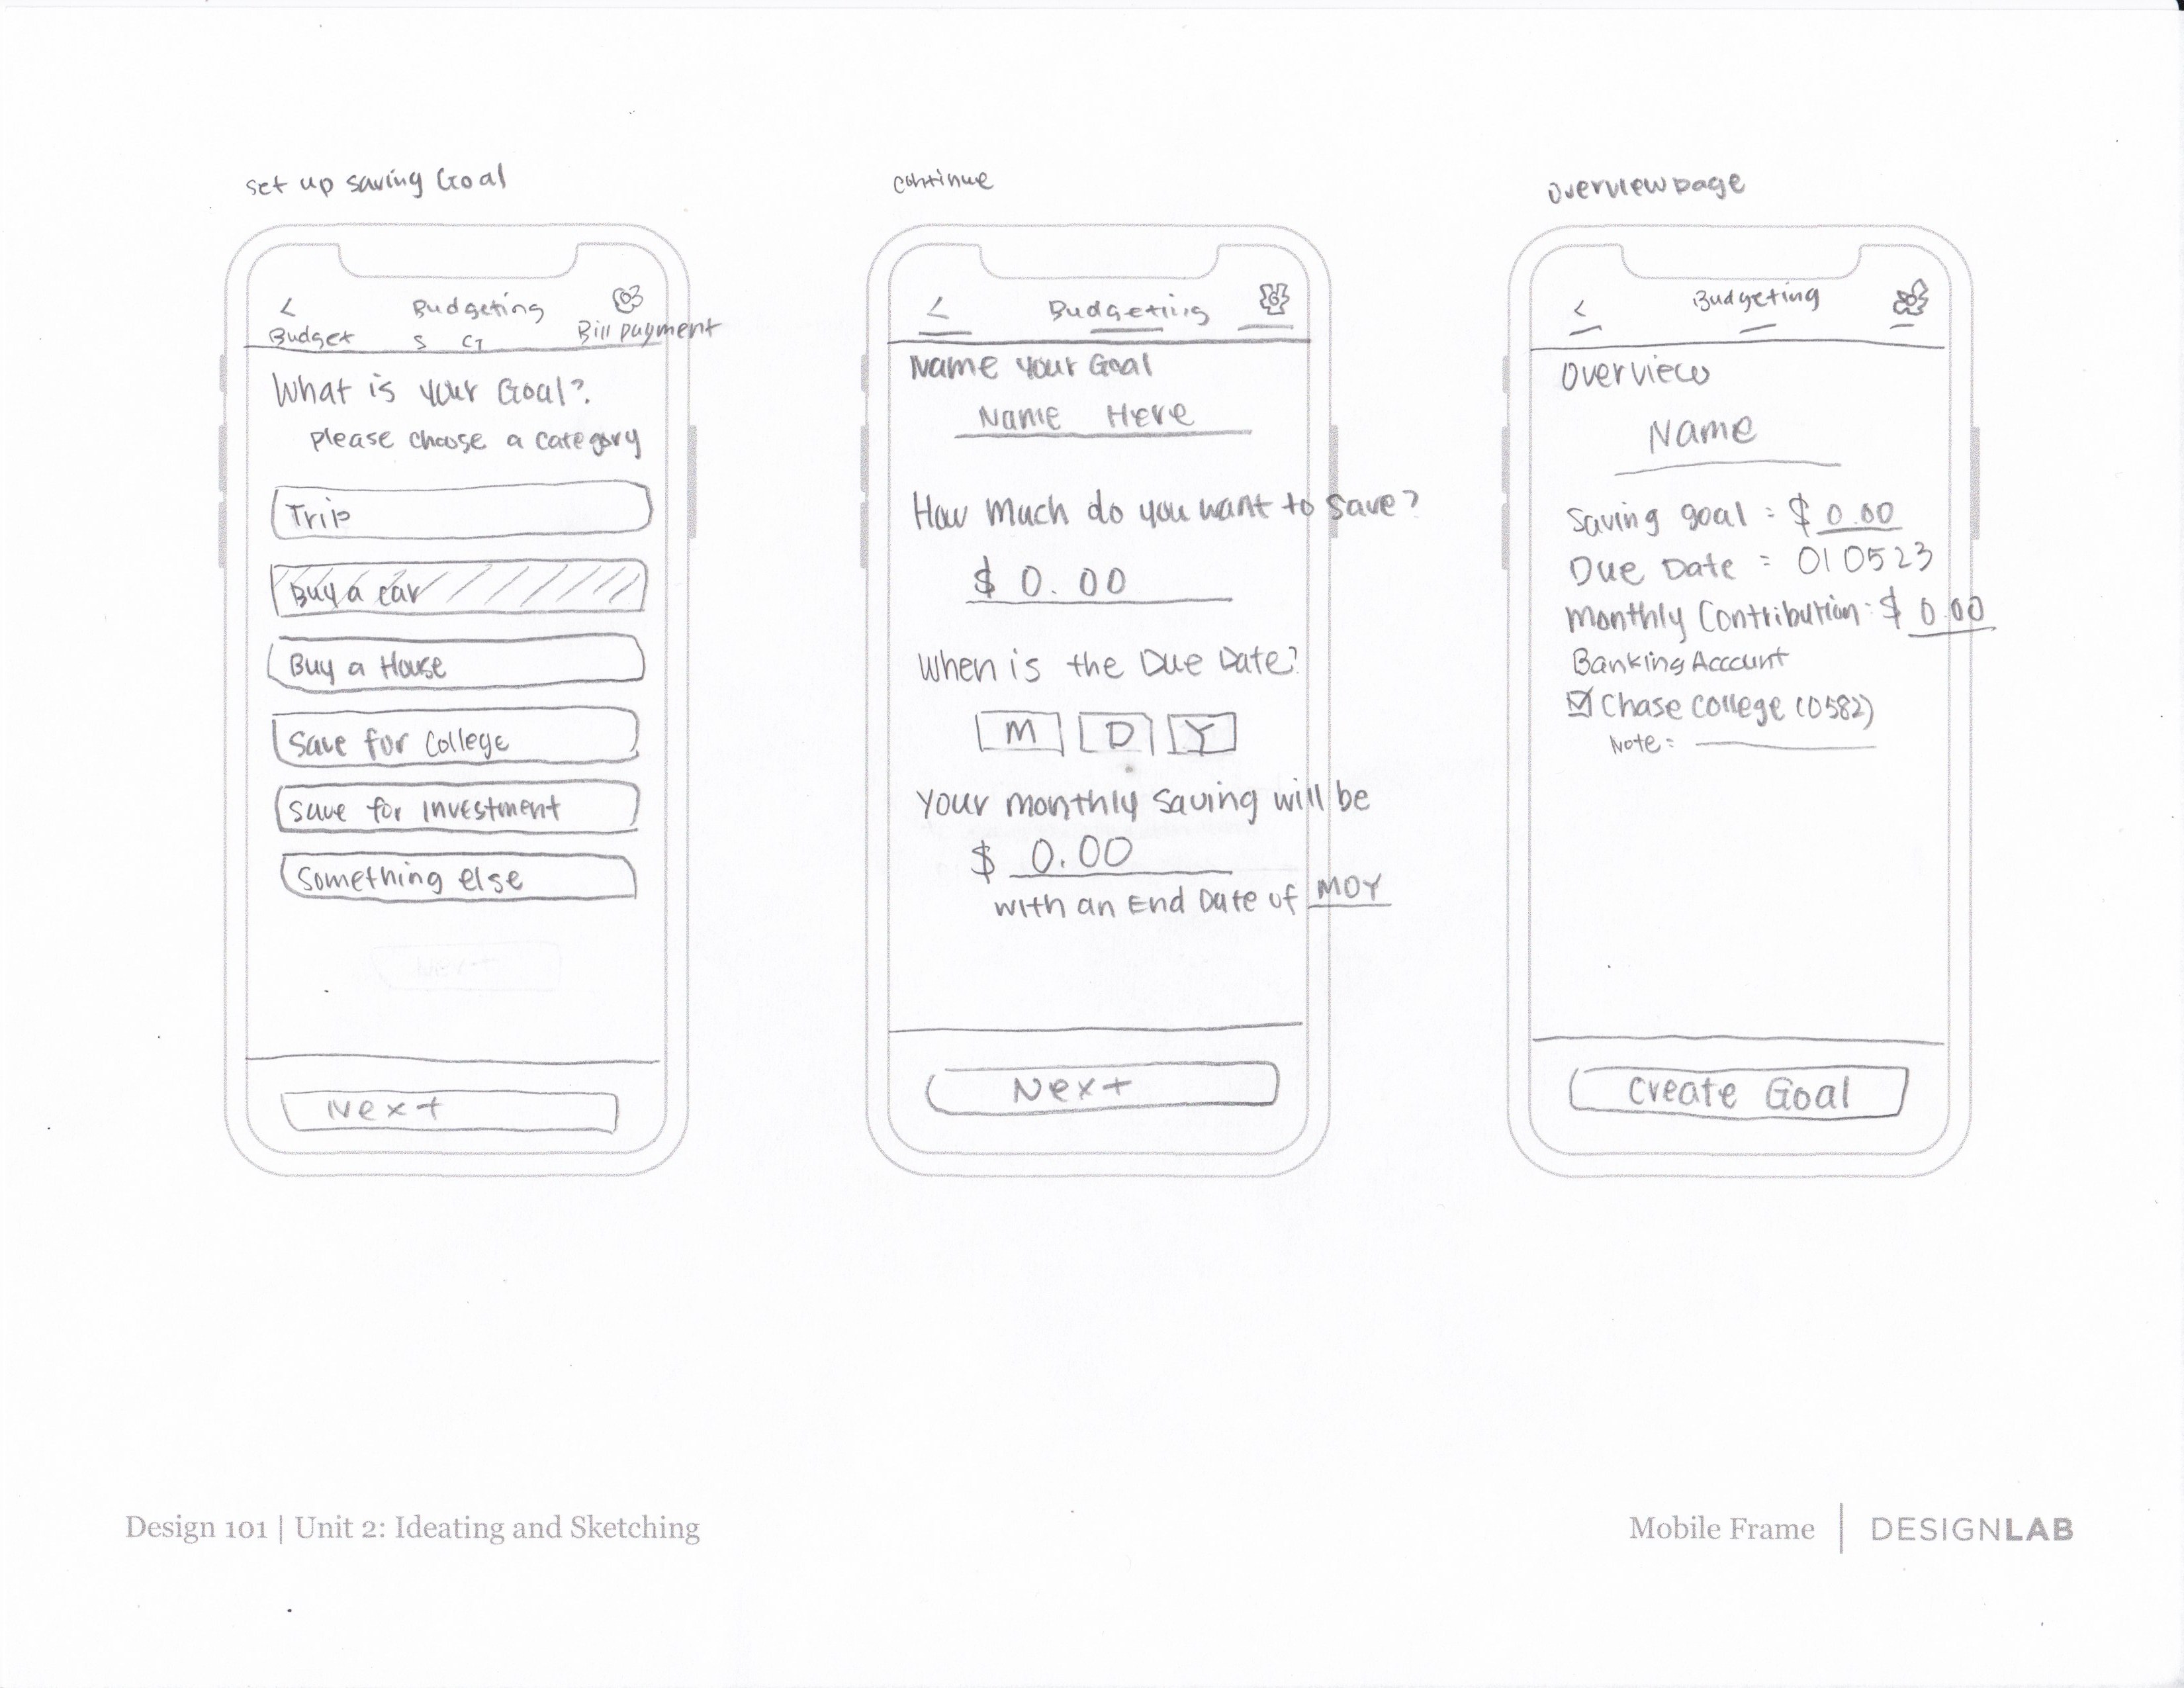 set up saving Goal
<
Budgeting
Budget S G Bill payment
What is your Goal?
please choose a category
Trip
Buy a car
Buy a House
Save for College
Save for Investment
Something else
Next
continue
<
Budgeting
Name Your Goal
Name Here
How Much do you want to save?
$ 0.00
When is the Due Date?
M D Y
Your monthly saving will be
$ 0.00
with an End Date of MDY
Next
overview page
<
Budgeting
Overview
Name
Saving goal = $ 0.00
Due Date = 010523
Monthly Contribution: $ 0.00
Banking Account
Chase College (0582)
Note:
Create Goal
Design 101 | Unit 2: Ideating and Sketching
Mobile Frame | DESIGNLAB